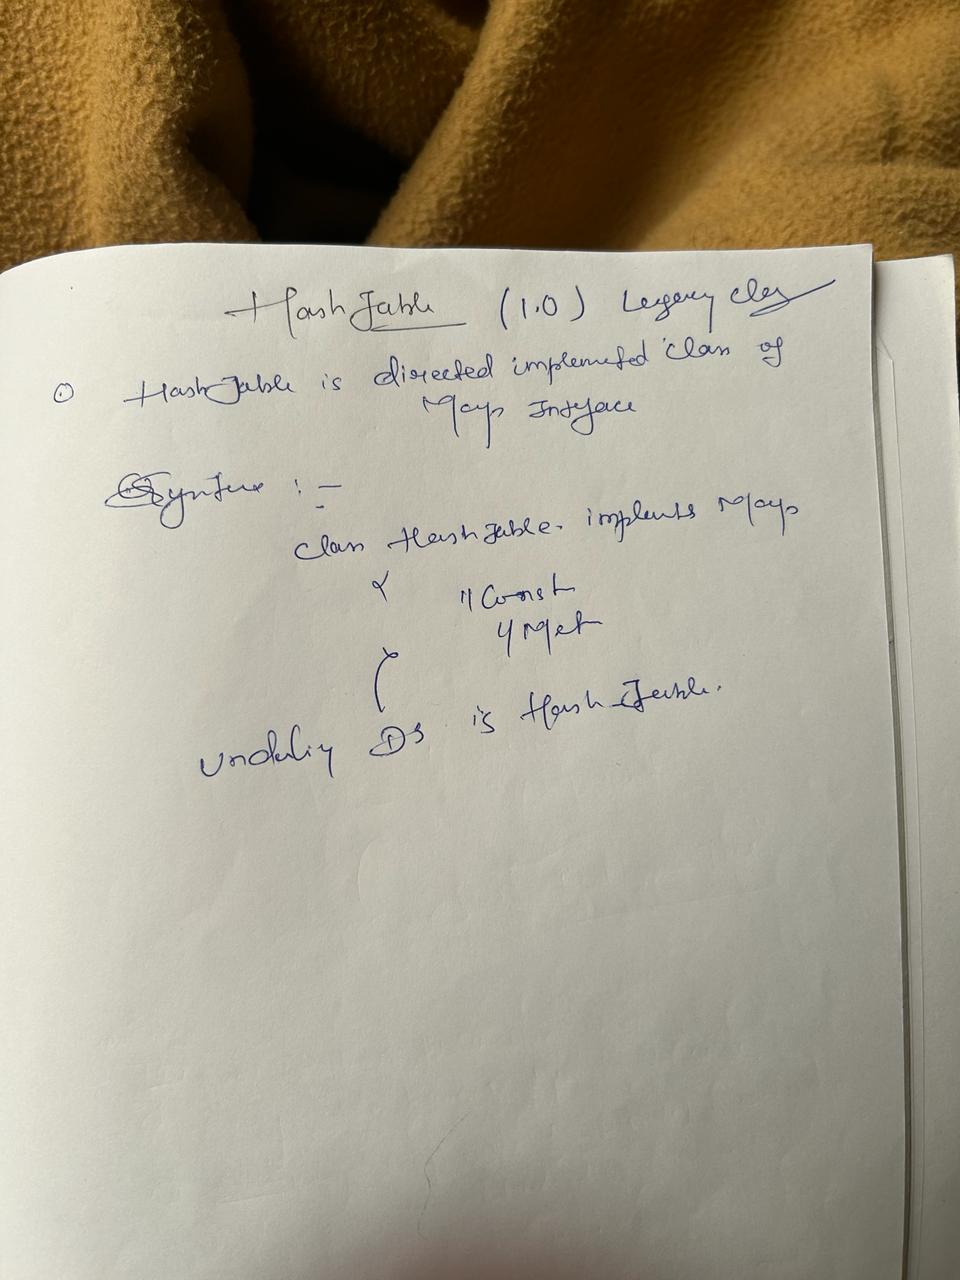 HashTable (1.0) Legacy class
① HashTable is directed implemented class of
Map Interface
Syntax : -
class HashTable implents Map
{ // Const
// Met
}
Undeliy DS is Hash Table.